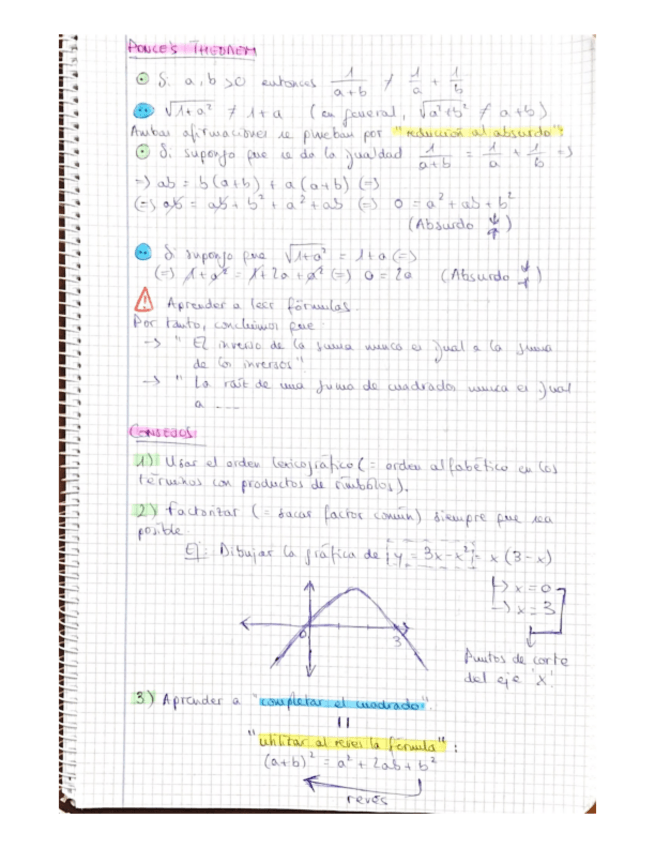 PONCE'S THEOREM
Si a, b > 0 entonces 1/(a+b) ≠ 1/a + 1/b
√(1+a²) ≠ 1+a (en general, √(a²+b²) ≠ a+b)
Ambas afirmaciones se prueban por "reducción al absurdo":
Si supongo que se da la igualdad 1/(a+b) = 1/a + 1/b =>
=> ab = b(a+b) + a(a+b) (=)
(=) ab = ab + b² + a² + ab (=) 0 = a² + ab + b²
(Absurdo)
Si supongo que √(1+a²) = 1+a (=)
(=) 1+a² = 1+2a+a² (=) 0 = 2a (Absurdo)
Aprender a leer fórmulas.
Por tanto, concluimos que:
-> "El inverso de la suma nunca es igual a la suma
de los inversos".
-> "La raíz de una suma de cuadrados nunca es igual
a ....
CONSEJOS
1) Usar el orden lexicográfico (= orden alfabético en los
términos con productos de símbolos).
2) Factorizar (= sacar factor común) siempre que sea
posible.
Ej: Dibujar la gráfica de y = 3x-x² = x(3-x)
-> x = 0
-> x = 3
0
3
Puntos de corte
del eje 'x'
3) Aprender a "completar el cuadrado".
=
"utilizar al revés la fórmula":
(a+b)² = a² + 2ab + b²
revés